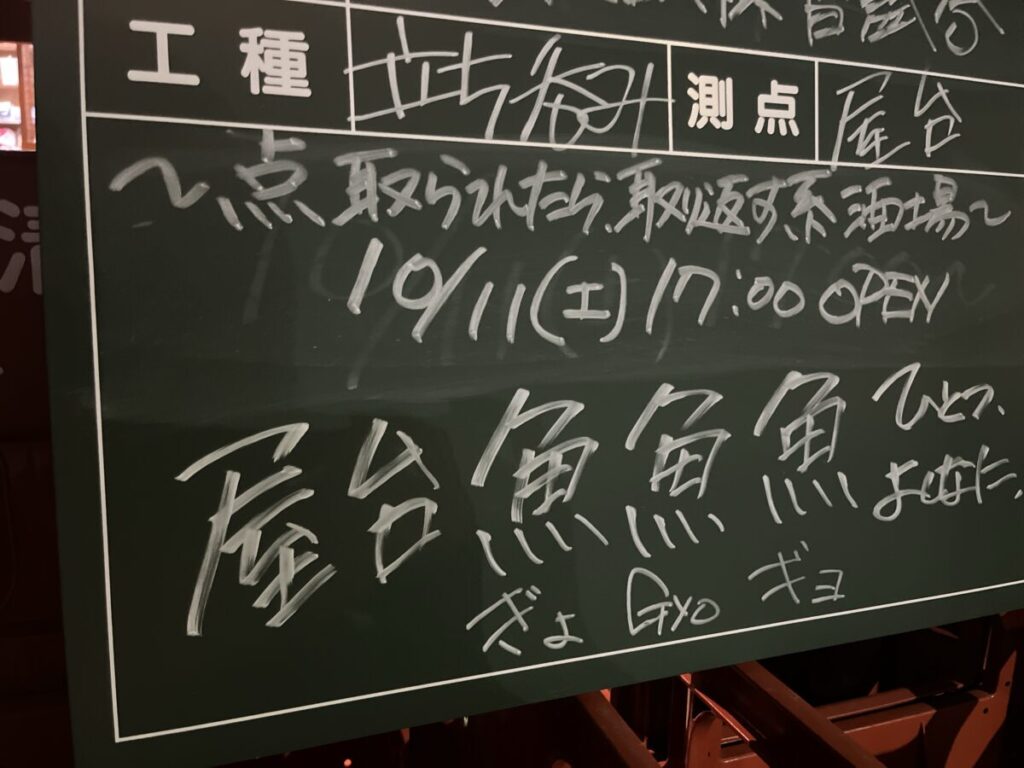 工種 立ち飲み 測点 屋台
〜点取られたら、取り返す系酒場〜
10/11(土)17:00 OPEN
屋台魚魚魚 ひとつ、
よしなに、
ぎょ Gyo ギョ